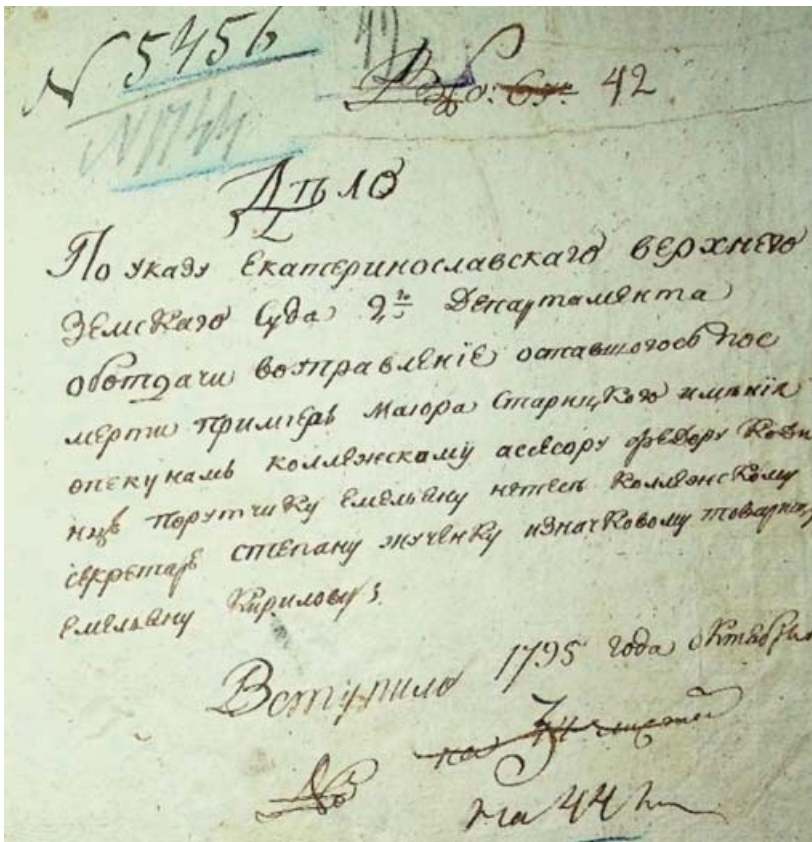 N 5456
N 1744
42
Дѣло
По указу Екатеринославскаго верхнего
Земскаго Суда 2го Департамента
оботдачи воуправленіе оставшогось пос
мерти примиеръ Маіора Старицкого имѣнія
опекунамъ коллежскому асесору федору
порутчику Емельяну коллежскому
секретарю степану жученку изначковому товарищу
Емельяну Кирилову
Вступило 1795 года октября
на 44 л